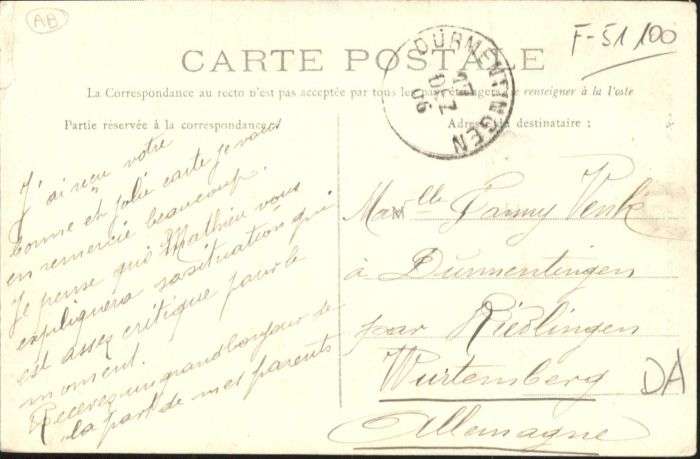 AB
F-51 100
CARTE POSTALE
DÜRMENTINGEN
17 DEZ 06
La Correspondance au recto n'est pas acceptée par tous les pays étrangers. Se renseigner à la Poste
Partie réservée à la correspondance.
Adresse du destinataire :
J'ai reçu votre
bonne et jolie carte je vous
en remercie beaucoup.
Je pense que Mathieu vous
expliquera sa situation qui
est assez critique pour le
moment.
Recevez un grand bonjour de
la part de mes parents
Melle Fanny Venk
à Durmentingen
par Riedlingen
Wurtemberg
Allemagne
DA